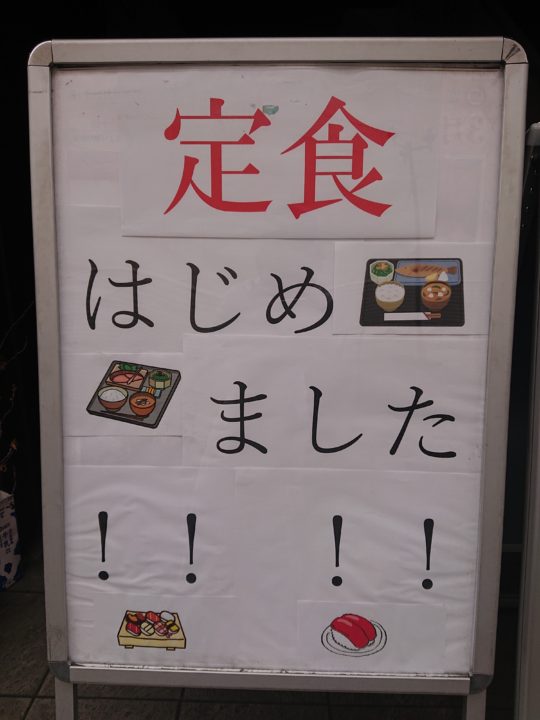 定食
はじめ
ました
!! !!